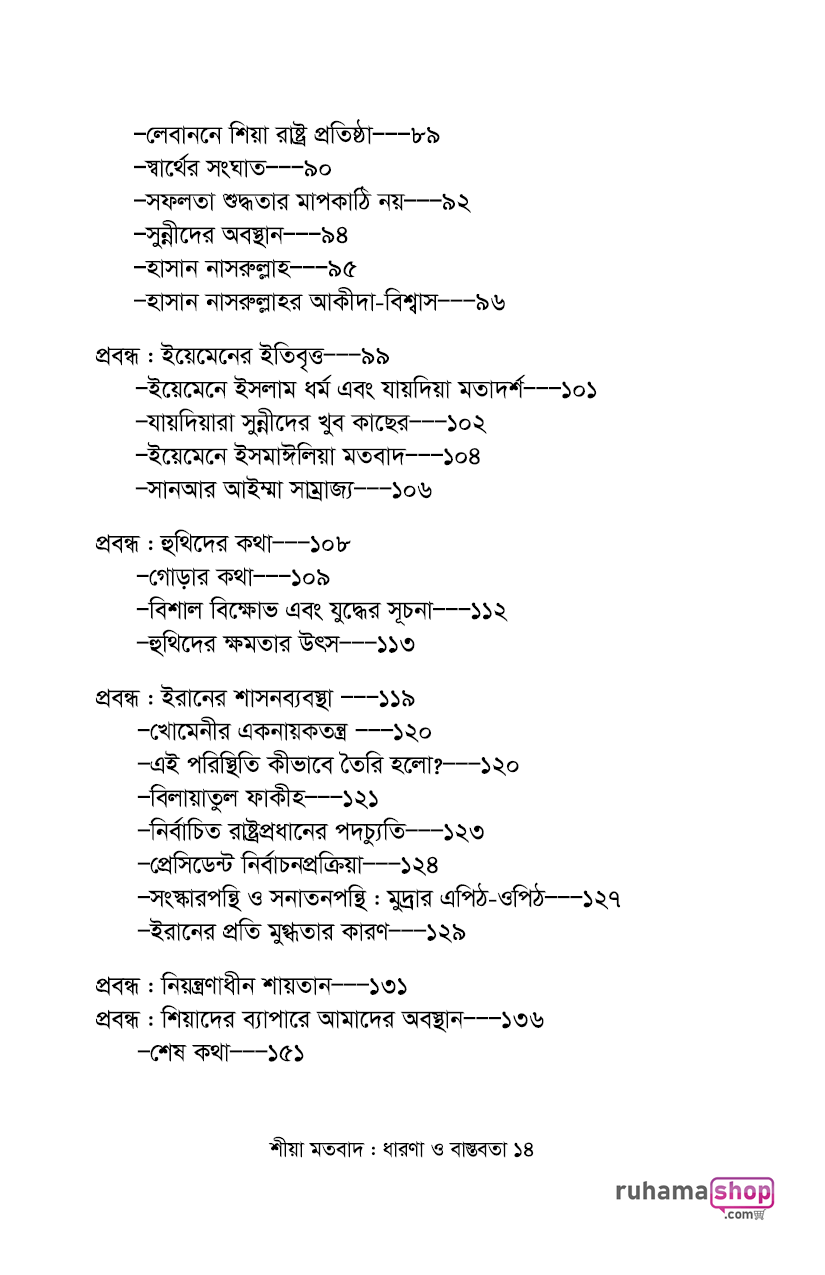 –লেবাননে শিয়া রাষ্ট্র প্রতিষ্ঠা–––৮৯
–স্বার্থের সংঘাত–––৯০
–সফলতা শুদ্ধতার মাপকাঠি নয়–––৯২
–সুন্নীদের অবস্থান–––৯৪
–হাসান নাসরুল্লাহ–––৯৫
–হাসান নাসরুল্লাহর আকীদা-বিশ্বাস–––৯৬
প্রবন্ধ : ইয়েমেনের ইতিবৃত্ত–––৯৯
–ইয়েমেনে ইসলাম ধর্ম এবং যায়দিয়া মতাদর্শ–––১০১
–যায়দিয়ারা সুন্নীদের খুব কাছের–––১০২
–ইয়েমেনে ইসমাঈলিয়া মতবাদ–––১০৪
–সানআর আইম্মা সাম্রাজ্য–––১০৬
প্রবন্ধ : হুথিদের কথা–––১০৮
–গোড়ার কথা–––১০৯
–বিশাল বিক্ষোভ এবং যুদ্ধের সূচনা–––১১২
–হুথিদের ক্ষমতার উৎস–––১১৩
প্রবন্ধ : ইরানের শাসনব্যবস্থা –––১১৯
–খোমেনীর একনায়কতন্ত্র –––১২০
–এই পরিস্থিতি কীভাবে তৈরি হলো?–––১২০
–বিলায়াতুল ফাকীহ–––১২১
–নির্বাচিত রাষ্ট্রপ্রধানের পদচ্যুতি–––১২৩
–প্রেসিডেন্ট নির্বাচনপ্রক্রিয়া–––১২৪
–সংস্কারপন্থি ও সনাতনপন্থি : মুদ্রার এপিঠ-ওপিঠ–––১২৭
–ইরানের প্রতি মুগ্ধতার কারণ–––১২৯
প্রবন্ধ : নিয়ন্ত্রণাধীন শায়তান–––১৩১
প্রবন্ধ : শিয়াদের ব্যাপারে আমাদের অবস্থান–––১৩৬
–শেষ কথা–––১৫১
শীয়া মতবাদ : ধারণা ও বাস্তবতা ১৪
ruhamashop
.com